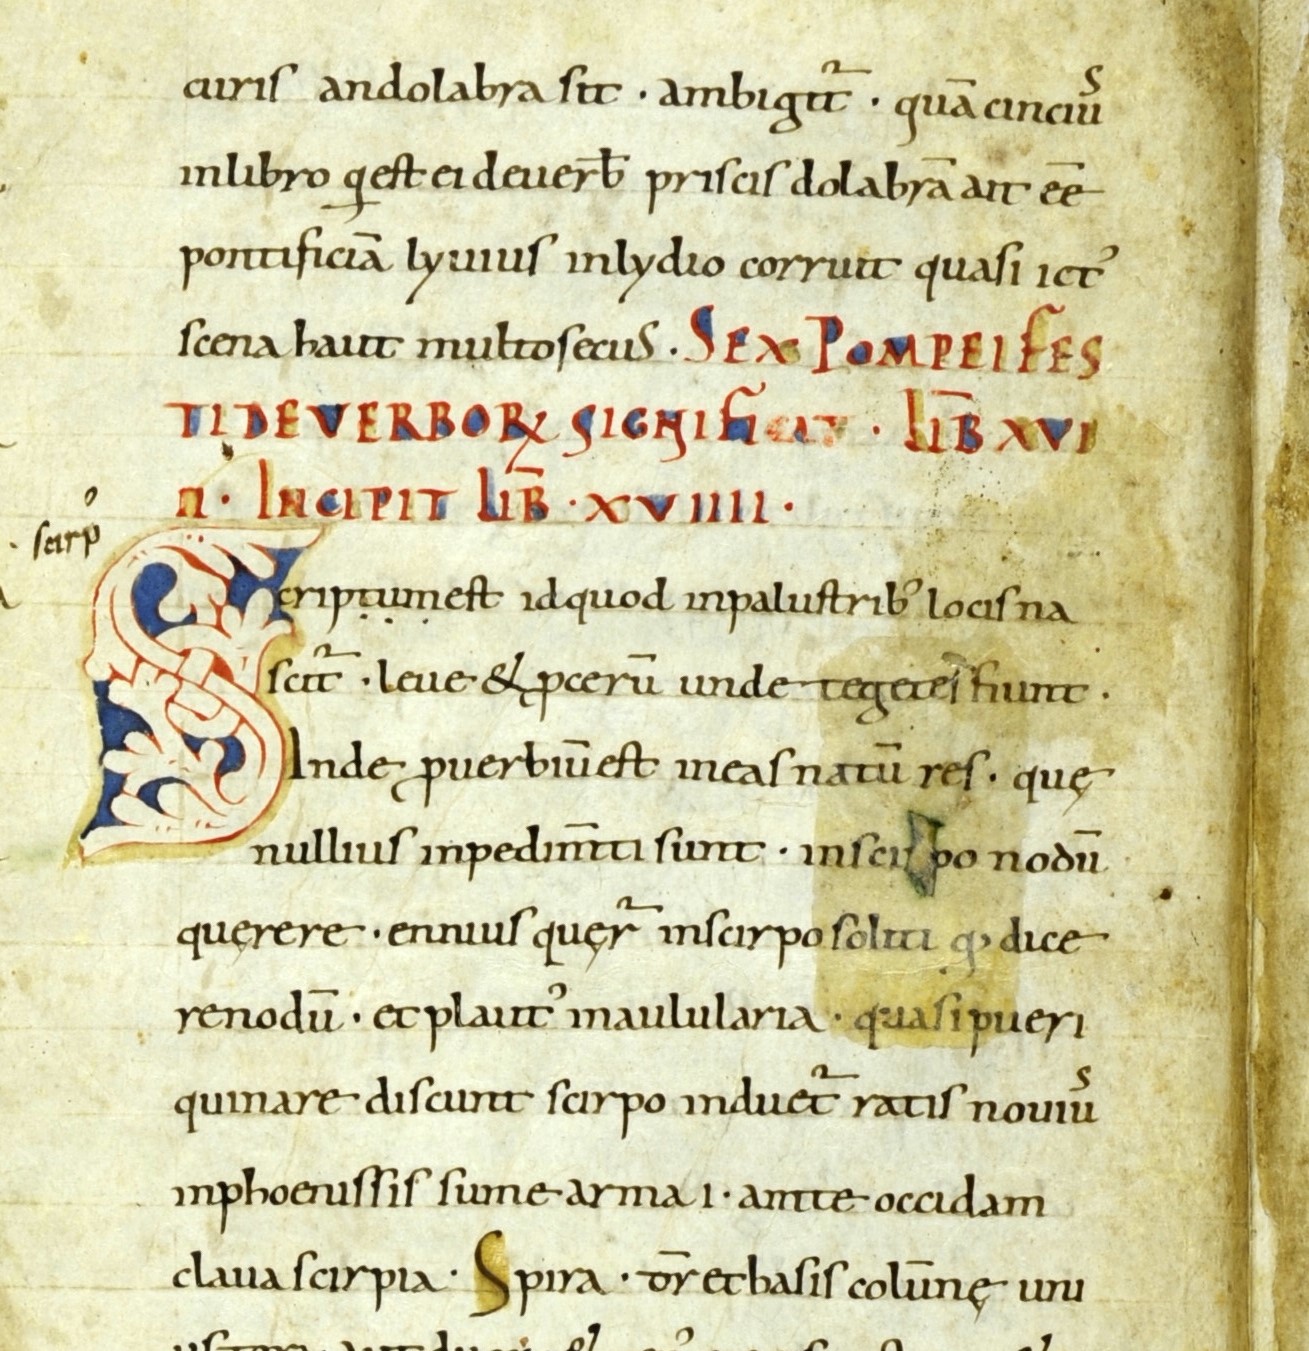 curis andolabra sit · ambigit᷑ · quā cinciū
s
inlibro q̱ est ei deuerb̄ priscis dolabrā ait eē
pontificiā lyuius inlydio corruit quasi ict᾽
scena haut multosecus · SEX POMPEI FES
TI DE VERBORꝜ SIGNIFICAT · LIB̄ XVI
II · INCIPIT LIB̄ · XVIIII ·
· scirp᾽
Scriptum est idquod inpalustrib᾽ locis na
scit᷑ · leue & ꝓcerū unde tegetes fiunt ·
Inde ꝓuerbiū est ineas natū res · quę
nullius inpedim̄ti sunt · inscirpo nodū
quęrere · ennius quęr᷑ inscirpo soliti ꝙ dice
re nodū · et plaut᾽ inaulularia · quasi pueri
qui nare discunt scirpo induet᷑ ratis nouiū
s
inphoenissis sume arma i · amte occidam
claua scirpia · Spira · dr̄ et basis colūnę uni